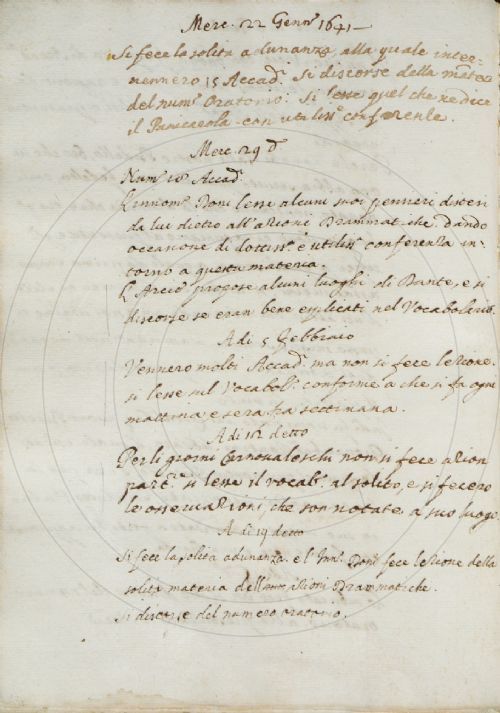 Merc. 22 Genn.o 1641
Si fece la solita adunanza, alla quale inter-
vennero 15 Accad.i Si discorse della mater.a
del num.o Oratorio: Si lesse quel che ne dice
il Panicarola con utiliss.e conferenze.
Merc. 29 d.o
Num.o 10 Accad.i
L'Innom.o Doni lesse alcuni suoi pensieri distesi
da lui dietro all'azioni Drammatiche, dando
occasione di dottiss.e e utiliss.e conferenze in-
torno a questa materia.
L'Arcic.o propose alcuni luoghi di Dante, e si
discorse se eran bene esplicati nel Vocabolario.
A dì 5 Febbraio
Vennero molti Accad.i ma non si fece lezione.
si lesse sul Vocabol.o conforme a che si fa ogni
mattina e sera fra settimana.
A dì 12 detto
Per li giorni Carnovaleschi non si fece azion
part.e si lesse il vocab.o al solito, e si fecero
le osservazioni, che son notate a suo luogo
A dì 19 detto
Si fece la solita adunanza. e l'Inn.o Doni fece lezione della
solita materia dell' azioni Drammatiche.
si discorse del numero oratorio.